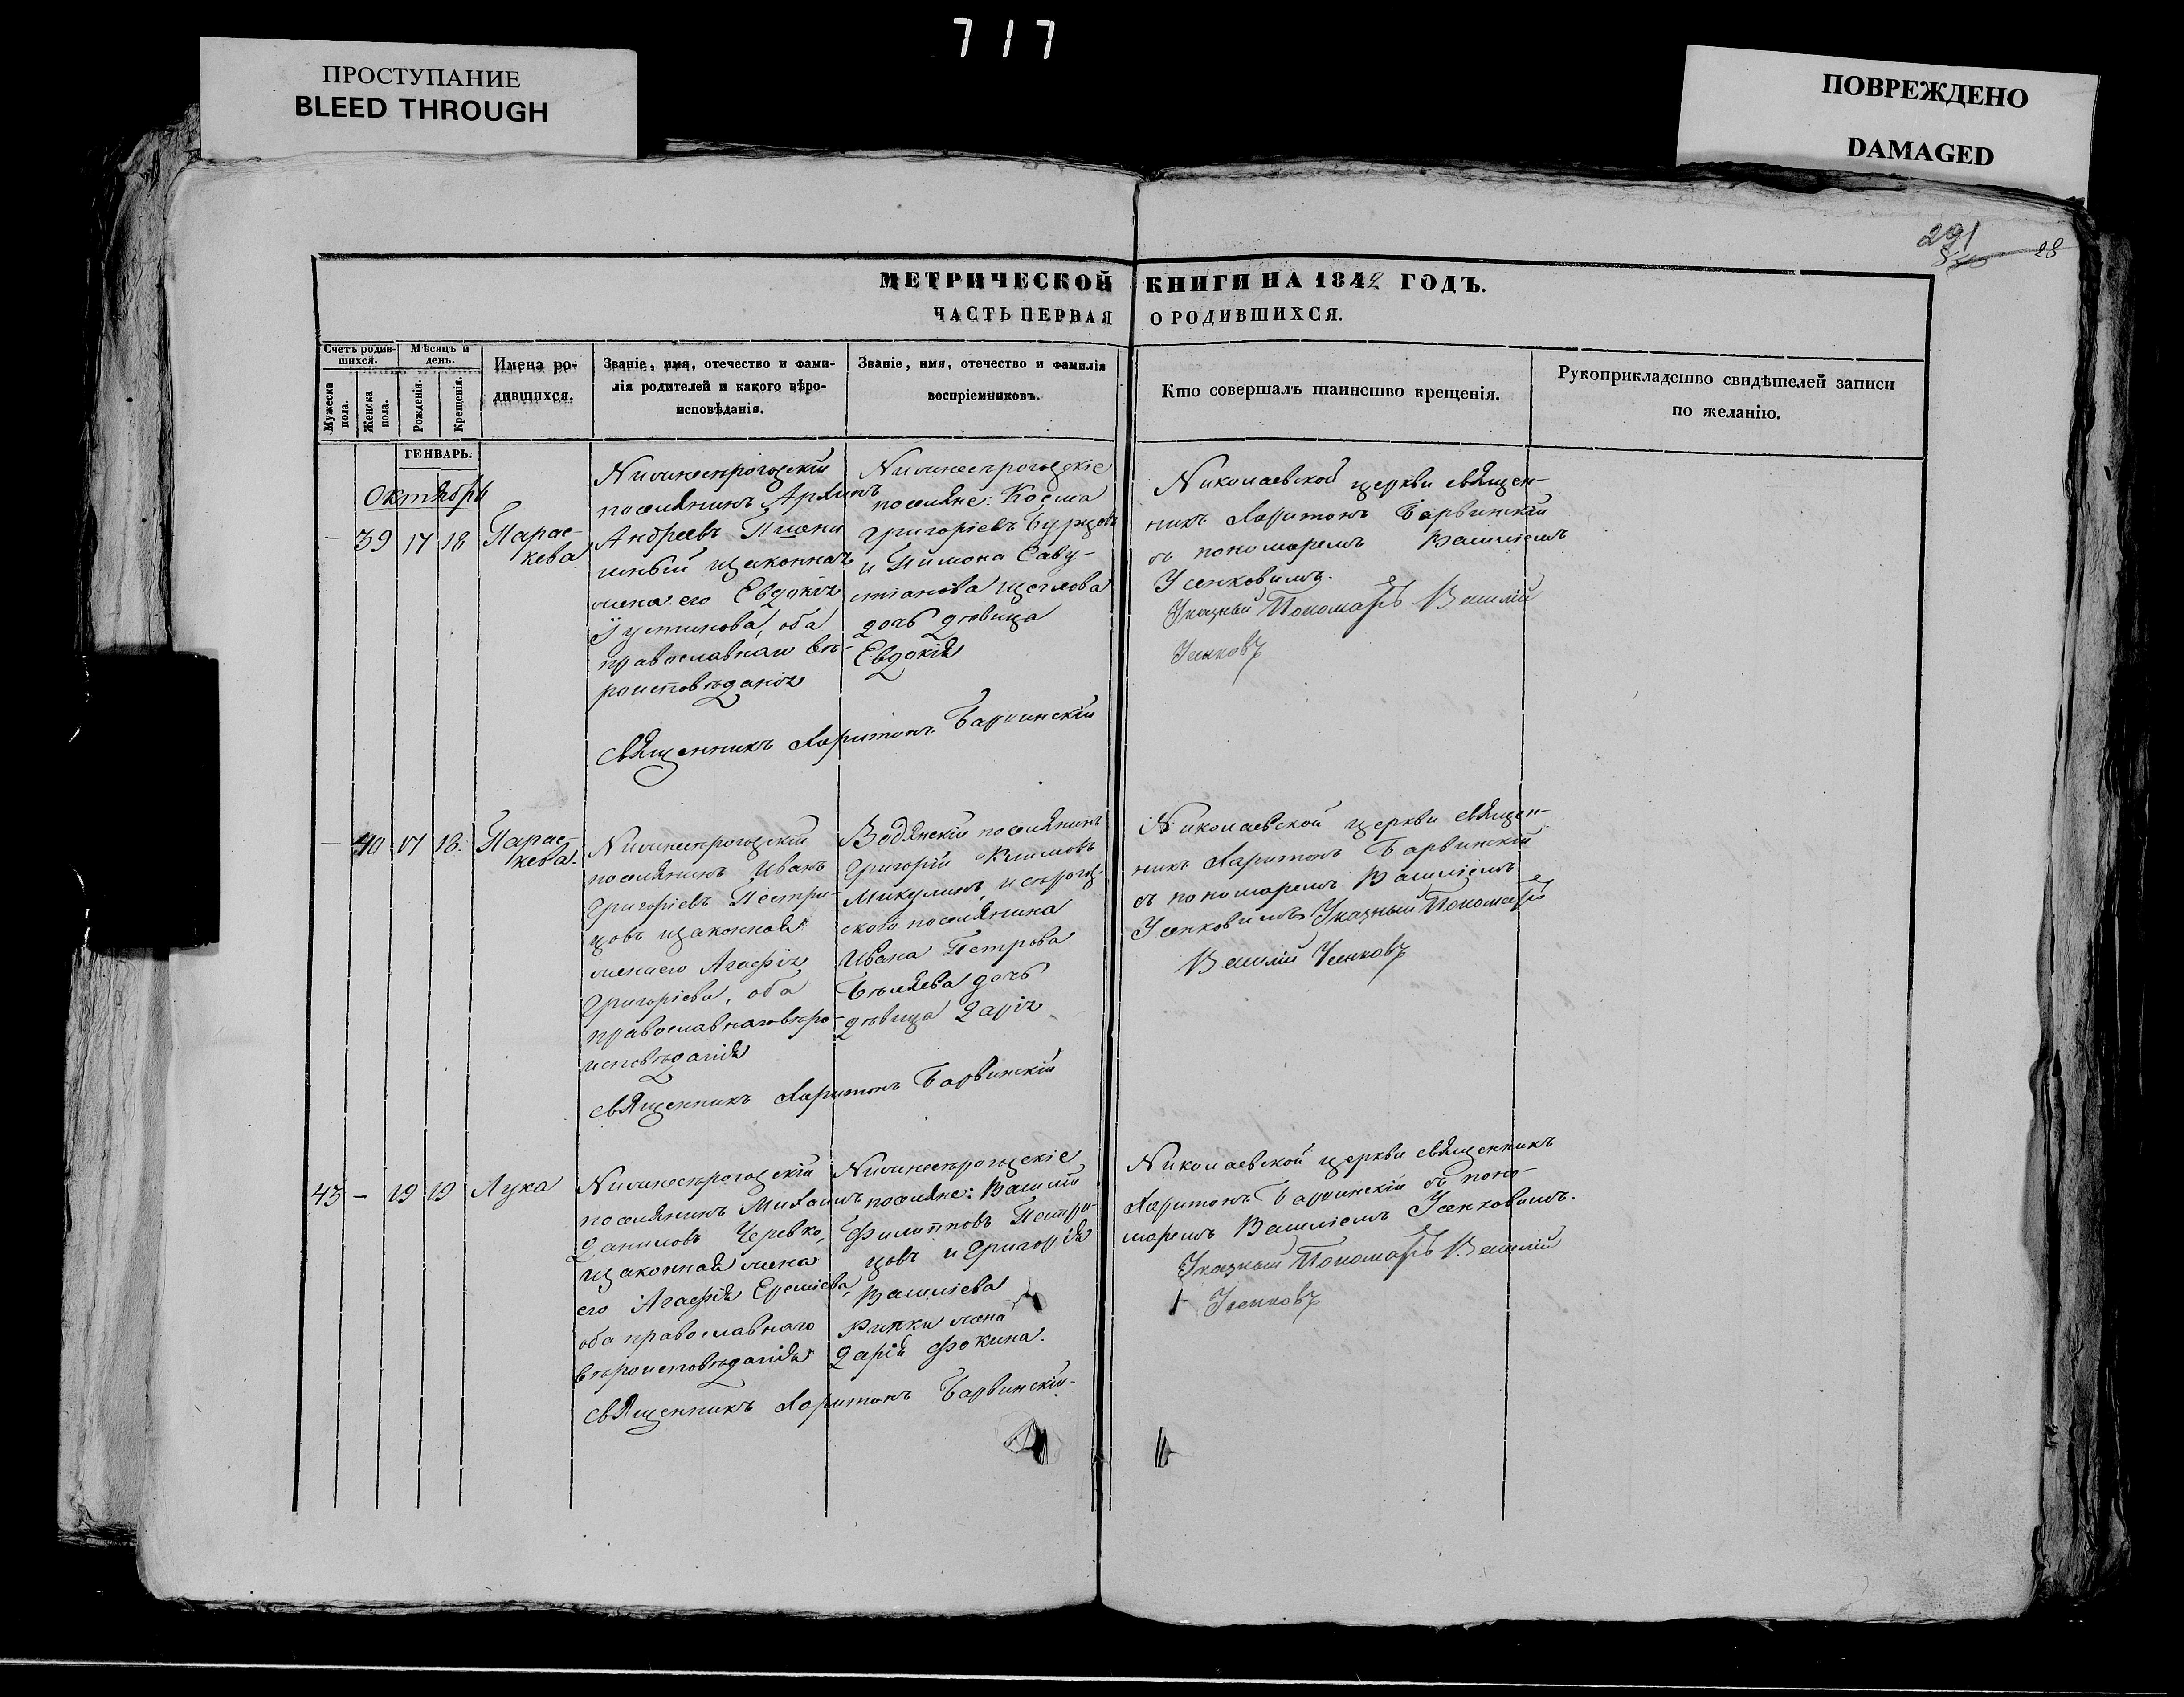 717
ПРОСТУПАНИЕ
BLEED THROUGH
ПОВРЕЖДЕНО
DAMAGED
291
28
МЕТРИЧЕСКОЙ КНИГИ НА 1842 ГОДЪ.
ЧАСТЬ ПЕРВАЯ О РОДИВШИХСЯ.
Счетъ родив-
шихся.
Мужеска
пола.
Женска
пола.
Мѣсяцъ и
день.
Рожденія.
Крещенія.
Имена ро-
дившихся.
Званіе, имя, отечество и фами-
лія родителей и какого вѣро-
исповѣданія.
Званіе, имя, отечество и фамилія
воспріемниковъ.
Кто совершалъ таинство крещенія.
Рукоприкладство свидѣтелей записи
по желанію.
ГЕНВАРЬ.
Октября
— 39 17 18 Парас-
кева
Нижнесѣрогозскій
поселянинъ
Андреевъ
и законная
жена его Евдокія
Устинова, оба
православнаго вѣ-
роисповѣданія
Нижнесѣрогозскіе
поселяне: Косма
Григоріевъ Бурцовъ
и Пимона Саву-
стіанова Щеглова
дочь дѣвица
Евдокія
Николаевской церкви священ-
никъ Харитонъ Барвинскій
съ пономаремъ Василіемъ
Усенковымъ.
Указный Пономарь Василій
Усенковъ
Священникъ Харитонъ Барвинскій
— 40 17 18. Парас-
кева.
Нижнесѣрогозскій
поселянинъ Иванъ
Григоріевъ Пестри-
цовъ и законная
жена его Агафія
Григоріева, оба
православнаго вѣро-
исповѣданія
Водянскій поселянинъ
Григорій Климовъ
Микулинъ, и сѣрогоз-
ского поселянина
Ивана Петрова
Бѣляева дочь
дѣвица Дарія
Николаевской церкви священ-
никъ Харитонъ Барвинскій
съ пономаремъ Василіемъ
Усенковымъ Указный Пономарь
Василій Усенковъ
Священникъ Харитонъ Барвинскій
43 — 19 19 Лука
Нижнесѣрогозскій
поселянинъ Михаилъ
Даниловъ Черевко,
и законная жена
его Агафія Еремѣева,
оба православнаго
вѣроисповѣданія
Нижнесѣрогозскіе
поселяне: Василій
Филипповъ Пестри-
цовъ и Григорія
Василіева
жена
Дарія Фокина.
Николаевской церкви священникъ
Харитонъ Барвинскій съ поно-
маремъ Василіемъ Усенковымъ.
Указный Пономарь Василій
Усенковъ
Священникъ Харитонъ Барвинскій